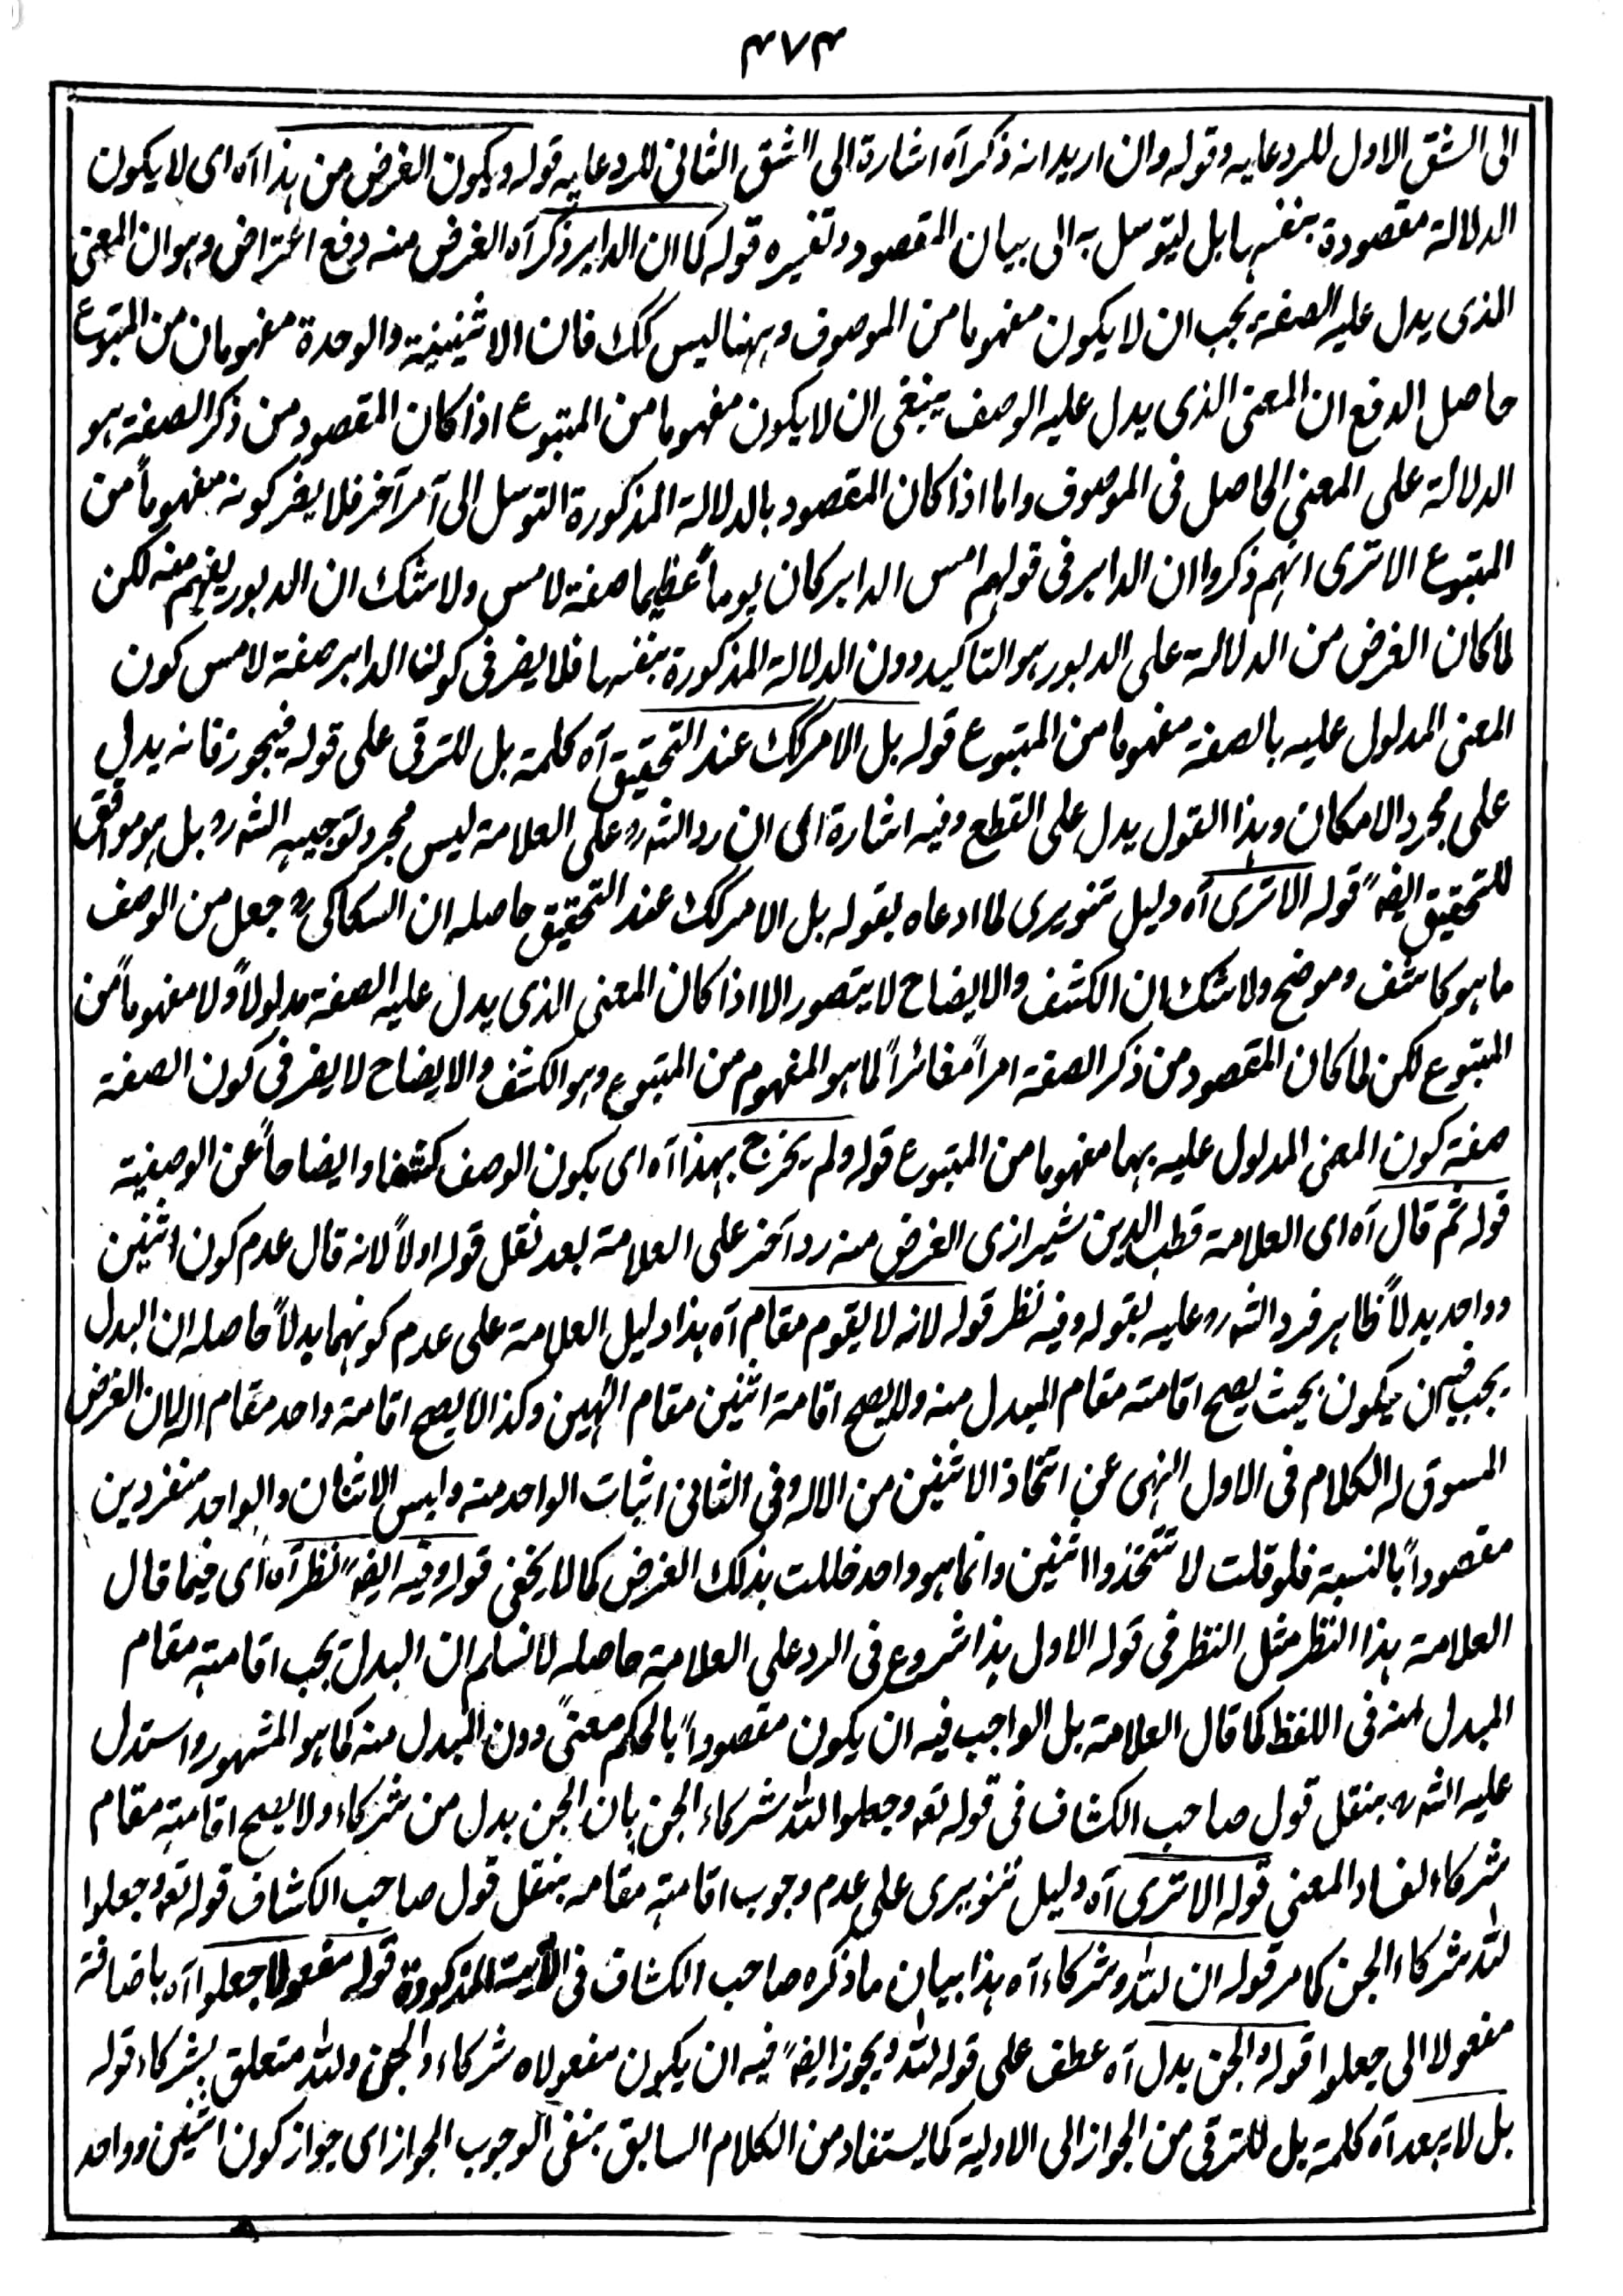 ٣٨٣
الى الشق الاول للرد عليه وقوله وان اريد انه ذكر آه اشارة الى الشق الثانى للرد عليه قوله ويكون الغرض من هذا آه اى لا يكون
الدلالة مقصودة بنفسها بل ليتوسل به الى بيان المقصود وتفسيره قوله كما ان الدابر ذكر آه الغرض منه دفع اعتراض وهو ان المعنى
الذى يدل عليه الصفة يجب ان لا يكون مفهوما من الموصوف وههنا ليس كك فان الاثنينية والوحدة مفهومان من المتبوع
حاصل الدفع ان المعنى الذى يدل عليه الوصف ينبغى ان لا يكون مفهوما من المتبوع اذا كان المقصود من ذكر الصفة هو
الدلالة على المعنى الحاصل فى الموصوف واما اذا كان المقصود بالدلالة المذكورة التوسل الى آمر آخر فلا يضر كونه مفهوماً من
المتبوع الا ترى انهم ذكروا ان الدابر فى قولهم امس الدابر كان يوماً عظيما صفة لامس ولا شك ان الدبور يفهم منه لكن
لما كان الغرض من الدلالة على الدبور هو التاكيد دون الدلالة المذكورة بنفسها فلا يضر فى كولنا الدابر صفة لامس كون
المعنى المدلول عليه بالصفة مفهوما من المتبوع قوله بل الامر كك عند التحقيق آه كلمة بل للترقى على قوله فيجوز فانه يدل
على مجرد الامكان وهذا القول يدل على القطع وفيه اشارة الى ان رد الشه ره على العلامة ليس مجرد توجيه الشه ره بل هو موافق
للتحقيق ايضاً قوله الا ترى آه دليل تنويرى لما ادعاه بقوله بل الامر كك عند التحقيق حاصله ان السكاكى ره جعل من الوصف
ما هو كاشف وموضح ولا شك ان الكشف والايضاح لا يتصور الا اذا كان المعنى الذى يدل عليه الصفة مدلولاً ولا مفهوماً من
المتبوع لكن لما كان المقصود من ذكر الصفة امراً مغائراً لما هو المفهوم من المتبوع وهو الكشف والايضاح لا يضر فى كون الصفة
صفة كون المعنى المدلول عليه بها مفهوما من المتبوع قوله ولم يخرج بهذا آه اى بكون الوصف كشفا وايضاحاً عن الوصفية
قوله ثم قال آه اى العلامة قطب الدين شيرازى الغرض منه رد آخر على العلامة بعد نقل قوله اولاً لانه قال عدم كون اثنين
وواحد بدلاً ظاهر فرد الشه ره عليه بقوله وفيه نظر قوله لانه لا يقوم مقام آه هذا دليل العلامة على عدم كونهما بدلاً حاصله ان البدل
يجب فيه ان يكون بحيث يصح اقامته مقام المبدل منه ولا يصح اقامة اثنين مقام الٰهين وكذا لا يصح اقامة واحد مقام اله لان الغرض
المسوق له الكلام فى الاول النهى عن اتخاذ الاثنين من الاله وفى الثانى اثبات الواحد منه وليس الاثنان والواحد منفردين
مقصوداً بالنسبة فلو قلت لا تتخذوا اثنين وانما هو واحد خللت بذلك الغرض كما لا يخفى قوله وفيه ايضاً نظر آه اى فيما قال
العلامة هذا النظر مثل النظر فى قوله الاول هذا شروع فى الرد على العلامة حاصله لا نسلم ان البدل يجب اقامته مقام
المبدل منه فى اللفظ كما قال العلامة بل الواجب فيه ان يكون مقصوداً بالحكم معنىً دون المبدل منه كما هو المشهور واستدل
عليه الشه ره بنقل قول صاحب الكشاف فى قوله تعه وجعلوا لله شركاء الجن بان الجن بدل من شركاء ولا يصح اقامته مقام
شركاء لفساد المعنى قوله الا ترى آه دليل تنويرى على عدم وجوب اقامته مقامه بنقل قول صاحب الكشاف قوله تعه وجعلوا
لله شركاء الجن كما مر قوله ان لله وشركاء آه هذا بيان ما ذكره صاحب الكشاف فى الآية المذكورة قوله مفعولا جعلوا آه باضافة
مفعولا الى جعلوا قوله والجن بدل آه عطف على قوله لله ويجوز ايضاً فيه ان يكون مفعولاه شركاء والجن ولله متعلق بشركاء قوله
بل لا يبعد آه كلمة بل للترقى من الجواز الى الاولية كما يستفاد من الكلام السابق بنفى الوجوب الجواز اى جواز كون اثنين وواحد